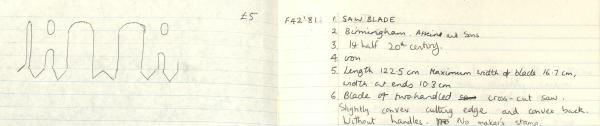 £5
F42'81. 1 SAW BLADE
2 Birmingham. Atkins and Sons
3. 1st half 20th century.
4 iron
5. Length 122.5 cm Maximum width of blade 16.7 cm,
width at ends 10.3 cm
6. Blade of two handled cross-cut saw.
Slightly convex cutting edge and convex back.
Without handles. No maker's stamp.